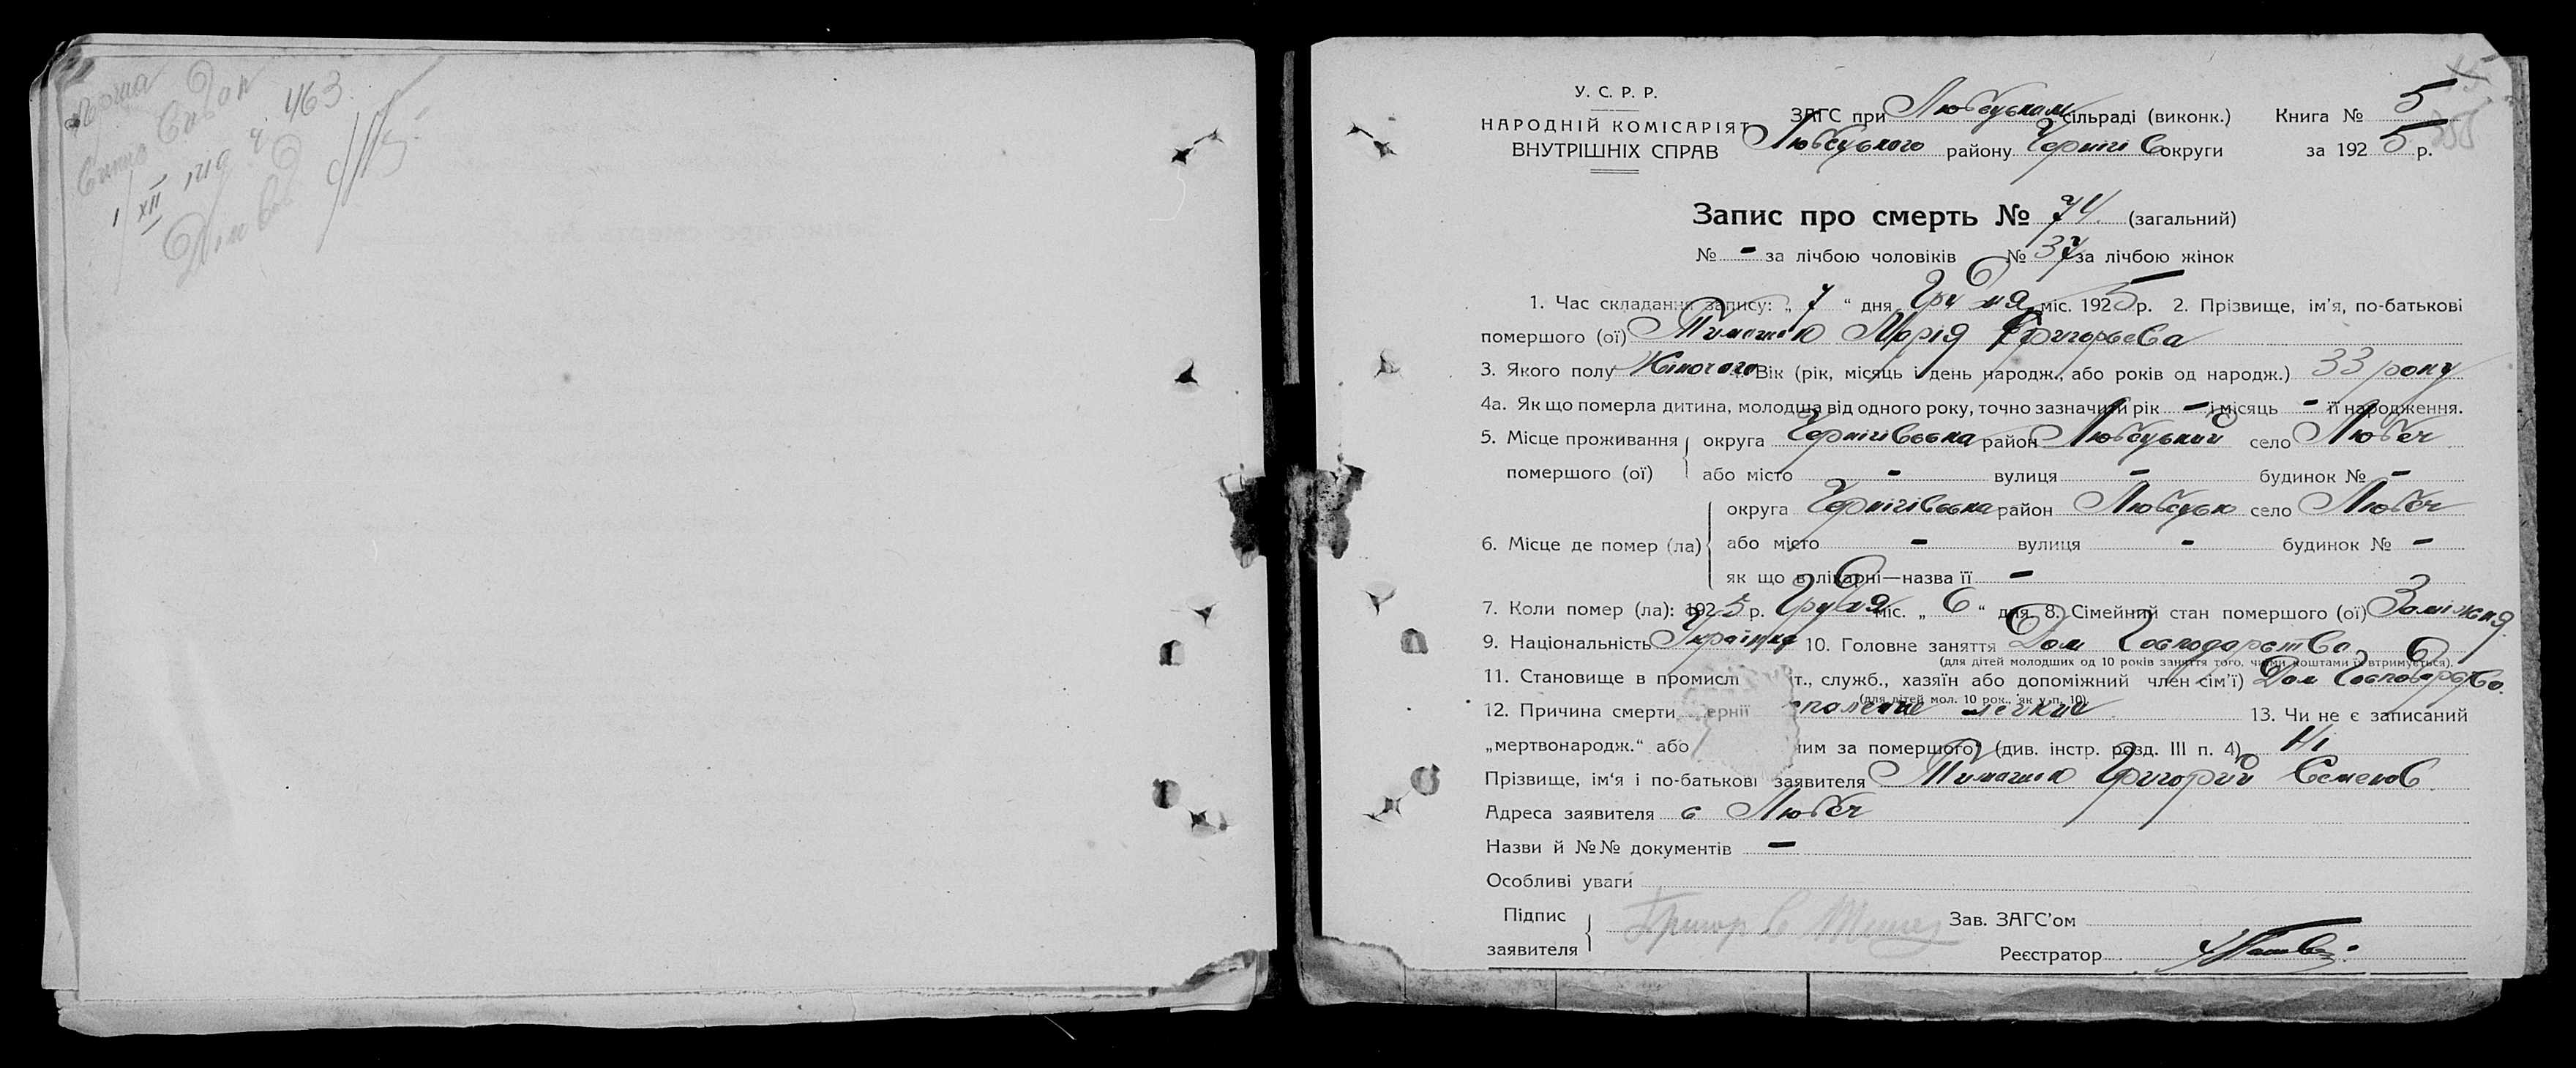 463
У. С. Р. Р.
НАРОДНІЙ КОМІСАРІЯТ
ВНУТРІШНІХ СПРАВ
ЗАГС при Любецькам сільраді (виконк.) Книга № 5
Любецького району Чернігів округи за 1925 р.
Запис про смерть № 74 (загальний)
№ - за лічбою чоловіків № 37 за лічбою жінок
1. Час складання запису: „ 7 “ дня Грудня міс. 1925 р. 2. Прізвище, ім’я, по-батькові
помершого (ої) Тимошко Марія Григорьева
3. Якого полу Жіночого Вік (рік, місяць і день народж., або років од народж.) 33 року
4а. Як що померла дитина, молодша від одного року, точно зазначити рік - і місяць - її народження.
5. Місце проживання округа Чернігівська район Любецький село Любеч
помершого (ої) або місто - вулиця - будинок № -
округа Чернігівська район Любецьк село Любеч
6. Місце де помер (ла) або місто - вулиця - будинок № -
як що в лікарні—назва її -
7. Коли помер (ла): 1925 р. Грудня міс. „ 6 “ дня 8. Сімейний стан помершого (ої) Заміжня
9. Національність Українка 10. Головне заняття Дом Господарство
(для дітей молодших од 10 років заняття того, чиїми коштами їх втримується).
11. Становище в промислі т., служб., хазяїн або допоміжний член сім’ї) Дом Господарство
(для дітей мол. 10 рок., як у п. 10)
12. Причина смерти спаление легких 13. Чи не є записаний
„мертвонародж.“ або ним за помершого? (див. інстр. розд. III п. 4) Ні
Прізвище, ім‘я і по-батькові заявителя Тимошко Григорий Семенов
Адреса заявителя с Любеч
Назви й №№ документів -
Особливі уваги
Підпис
заявителя
Зав. ЗАГС’ом
Реєстратор